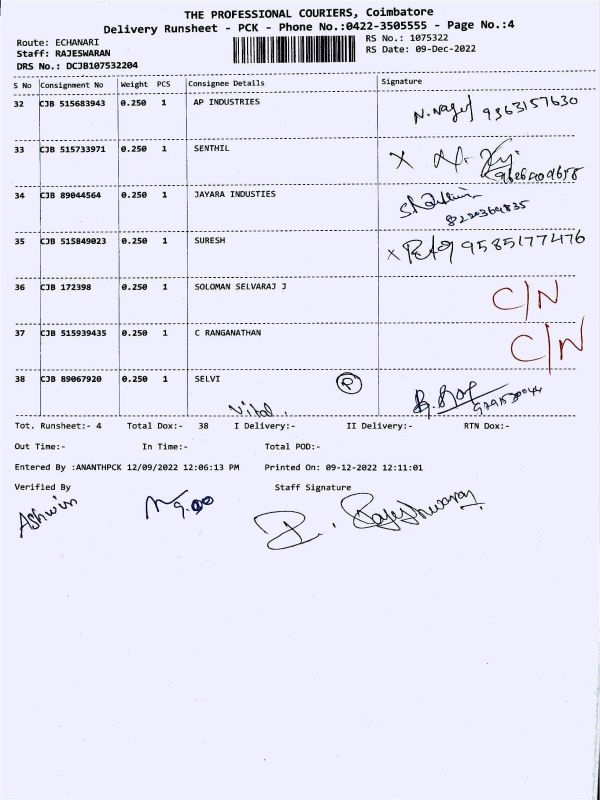 THE PROFESSIONAL COURIERS, Coimbatore
Delivery Runsheet - PCK - Phone No.:0422-3505555 - Page No.:4
Route: ECHANARI RS No.: 1075322
Staff: RAJESWARAN RS Date: 09-Dec-2022
DRS No.: DCJB107532204
S No Consignment No Weight PCS Consignee Details Signature
32 CJB 515683943 0.250 1 AP INDUSTRIES 9363157630
33 CJB 515733971 0.250 1 SENTHIL
34 CJB 89044564 0.250 1 JAYARA INDUSTIES
35 CJB 515849023 0.250 1 SURESH X 9585177476
36 CJB 172398 0.250 1 SOLOMAN SELVARAJ J C/N
37 CJB 515939435 0.250 1 C RANGANATHAN C/N
38 CJB 89067920 0.250 1 SELVI P
Tot. Runsheet:- 4 Total Dox:- 38 I Delivery:- II Delivery:- RTN Dox:-
Out Time:- In Time:- Total POD:-
Entered By :ANANTHPCK 12/09/2022 12:06:13 PM Printed On: 09-12-2022 12:11:01
Verified By Staff Signature
Ashwin Rajeshwaran